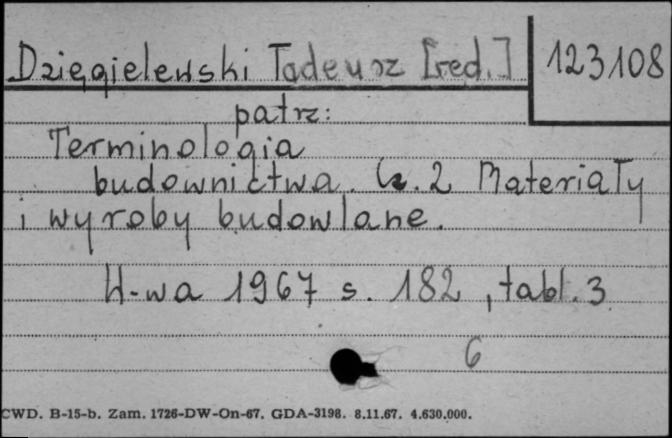 Dzięgielewski Tadeusz [red.] 123108
patrz:
Terminologia
budownictwa. Cz. 2 Materiały
i wyroby budowlane.
W-wa 1967 s. 182, tabl. 3
6
CWD. B-15-b. Zam. 1726-DW-On-67. GDA-3198. 8.11.67. 4.630.000.